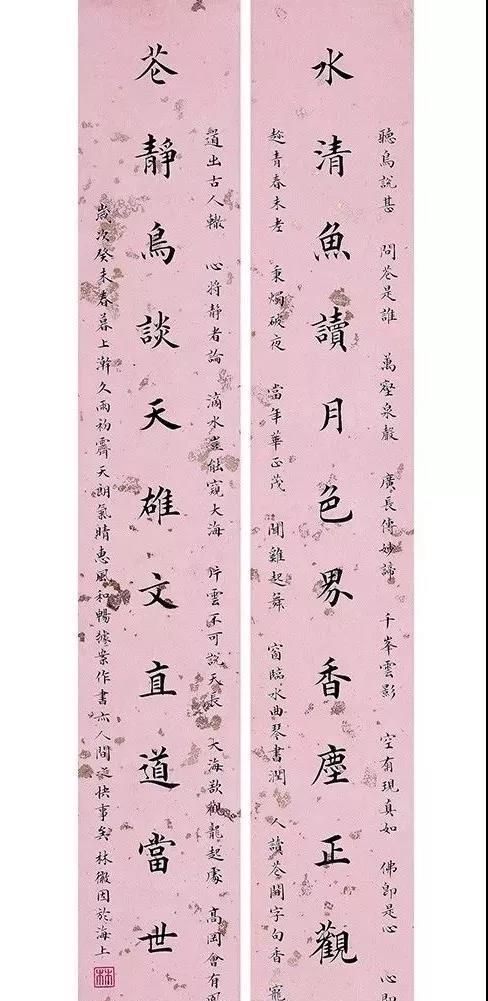 聽鳥說甚 問花是誰 萬壑泉聲 廣長傳妙諦 千峯雲影 空有現真如 佛即是心 心即
水清魚讀月色界香塵正觀
趁青春未老 秉燭破夜 當年華正茂 聞雞起舞 窗臨水曲琴書潤 人讀花間字句香 寵
道出古人轍 心將靜者論 滴水豈能窺大海 片雲不可說天長 大海欲觀龍起處 高岡會有
花靜鳥談天雄文直道當世
歲次癸未春暮上澣久雨初霽天朗氣晴惠風和暢據案作書亦人間快事矣林徽因於海上
林